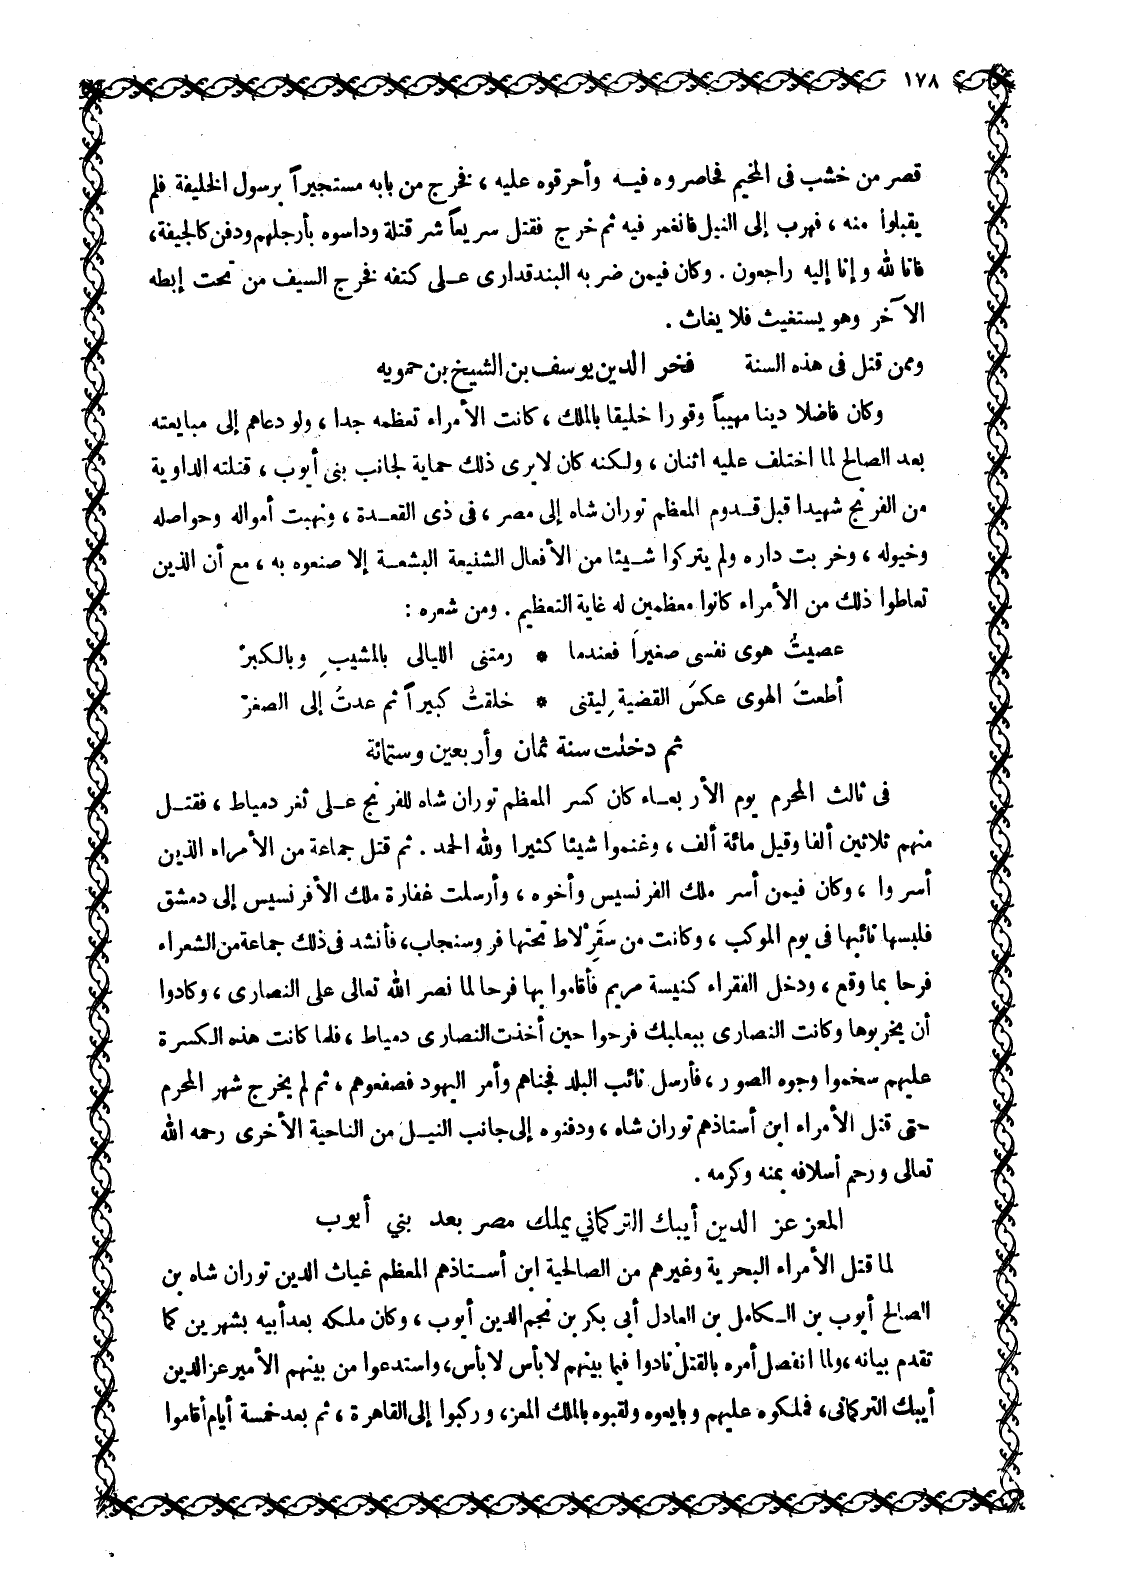 ١٧٨
قصر من خشب فى المخيم فحاصروه فيه وأحرقوه عليه ، فخرج من بابه مستجيراً برسول الخليفة فلم
يقبلوا منه ، فهرب إلى النيل فانغمر فيه ثم خرج فقتل سريعاً شر قتلة وداسوه بأرجلهم ودفن كالجيفة ،
فانا لله و إنا إليه راجعون . وكان فيمن ضربه البندقدارى عـلى كتفه فخرج السيف من تحت إبطه
الآخر وهو يستغيث فلا يغاث .
وممن قتل فى هذه السنة فخر الدين يوسف بن الشيخ بن حمويه
وكان فاضلا دينا مهيباً وقورا خليقا بالملك ، كانت الأمراء تعظمه جدا ، ولو دعاهم إلى مبايعته
بعد الصالح لما اختلف عليه اثنان ، ولكنه كان لا يرى ذلك حماية لجانب بنى أيوب ، قتلته الداوية
من الفرنج شهيدا قبل قـدوم المعظم توران شاه إلى مصر ، فى ذى القعـدة ، ونهبت أمواله وحواصله
وخيوله ، وخربت داره ولم يتركوا شـيئا من الأفعال الشنيعة البشعـة إلا صنعوه به ، مع أن الذين
تعاطوا ذلك من الأمراء كانوا معظمين له غاية التعظيم . ومن شعره :
عصيتُ هوى نفسى صغيراً فعندما * رمتنى الليالى بالمشيبِ وبالكبرْ
أطعتُ الهوى عكسَ القضية ليتنى * خلقتُ كبيراً ثم عدتُ إلى الصغرْ
ثم دخلت سنة ثمان وأربعين وستمائة
فى ثالث المحرم يوم الأربعـاء كان كسر المعظم توران شاه للفرنج عـلى ثغر دمياط ، فقتـل
منهم ثلاثين ألفا وقيل مائة ألف ، وغنموا شيئا كثيرا ولله الحمد . ثم قتل جماعة من الأمراء الذين
أسروا ، وكان فيمن أسر ملك الفرنسيس وأخوه ، وأرسلت غفارة ملك الأفرنسيس إلى دمشق
فلبسها نائبها فى يوم الموكب ، وكانت من سقرْلاط تحتها فرو سنجاب ، فأنشد فى ذلك جماعة من الشعراء
فرحا بما وقع ، ودخل الفقراء كنيسة مريم فأقاموا بها فرحا لما نصر الله تعالى على النصارى ، وكادوا
أن يخربوها وكانت النصارى ببعلبك فرحوا حين أخذت النصارى دمياط ، فلما كانت هذه الكسرة
عليهم سخموا وجوه الصور ، فأرسل نائب البلد فجناهم وأمر اليهود فصفعوهم ، ثم لم يخرج شهر المحرم
حتى قتل الأمراء ابن أستاذهم توران شاه ، ودفنوه إلى جانب النيـل من الناحية الأخرى رحمه الله
تعالى ورحم أسلافه بمنه وكرمه .
المعز عز الدين أيبك التركماني يملك مصر بعد بني أيوب
لما قتل الأمراء البحرية وغيرهم من الصالحية ابن أسـتاذهم المعظم غياث الدين توران شاه بن
الصالح أيوب بن الـكامل بن العادل أبى بكر بن نجم الدين أيوب ، وكان ملكه بعد أبيه بشهرين كما
تقدم بيانه ، ولما انفصل أمره بالقتل نادوا فيما بينهم لا بأس لا بأس ، واستدعوا من بينهم الأمير عز الدين
أيبك التركمانى ، فملكوه عليهم وبايعوه ولقبوه بالملك المعز ، وركبوا إلى القاهرة ، ثم بعد خمسة أيام أقاموا